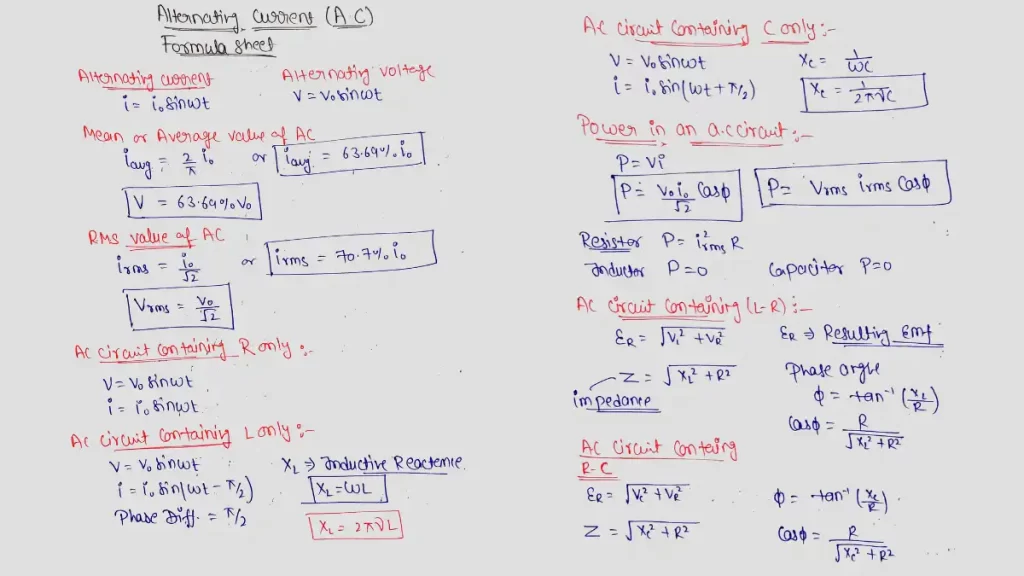 Alternating current (AC)
Formula sheet
Alternating current
i = i₀ sinωt
Alternating voltage
V = V₀ sinωt
Mean or Average value of AC
iavg = 2/π i₀ or iavg = 63.69% i₀
V = 63.69% V₀
RMS value of AC
irms = i₀/√2 or irms = 70.7% i₀
Vrms = V₀/√2
AC circuit containing R only :-
V = V₀ sinωt
i = i₀ sinωt
AC circuit containing L only :-
V = V₀ sinωt
i = i₀ sin(ωt - π/2)
Phase Diff. = π/2
XL ⇒ Inductive Reactence
XL = ωL
XL = 2πνL
AC circuit containing C only :-
V = V₀ sinωt
i = i₀ sin(ωt + π/2)
Xc = 1/ωC
Xc = 1/2πνC
Power in an a.c circuit :-
P = Vi
P = V₀i₀/√2 Cosφ
P = Vrms irms Cosφ
Resistor P = i²rms R
Inductor P = 0 Capacitor P = 0
AC circuit containing (L-R) :-
ER = √VL² + VR² ER ⇒ Resulting Emf
Z = √XL² + R²
impedance
Phase angle
φ = tan⁻¹ (XL/R)
Cosφ = R/√XL² + R²
AC circuit containg
R-C
ER = √Vc² + VR²
Z = √Xc² + R²
φ = tan⁻¹ (Xc/R)
Cosφ = R/√Xc² + R²